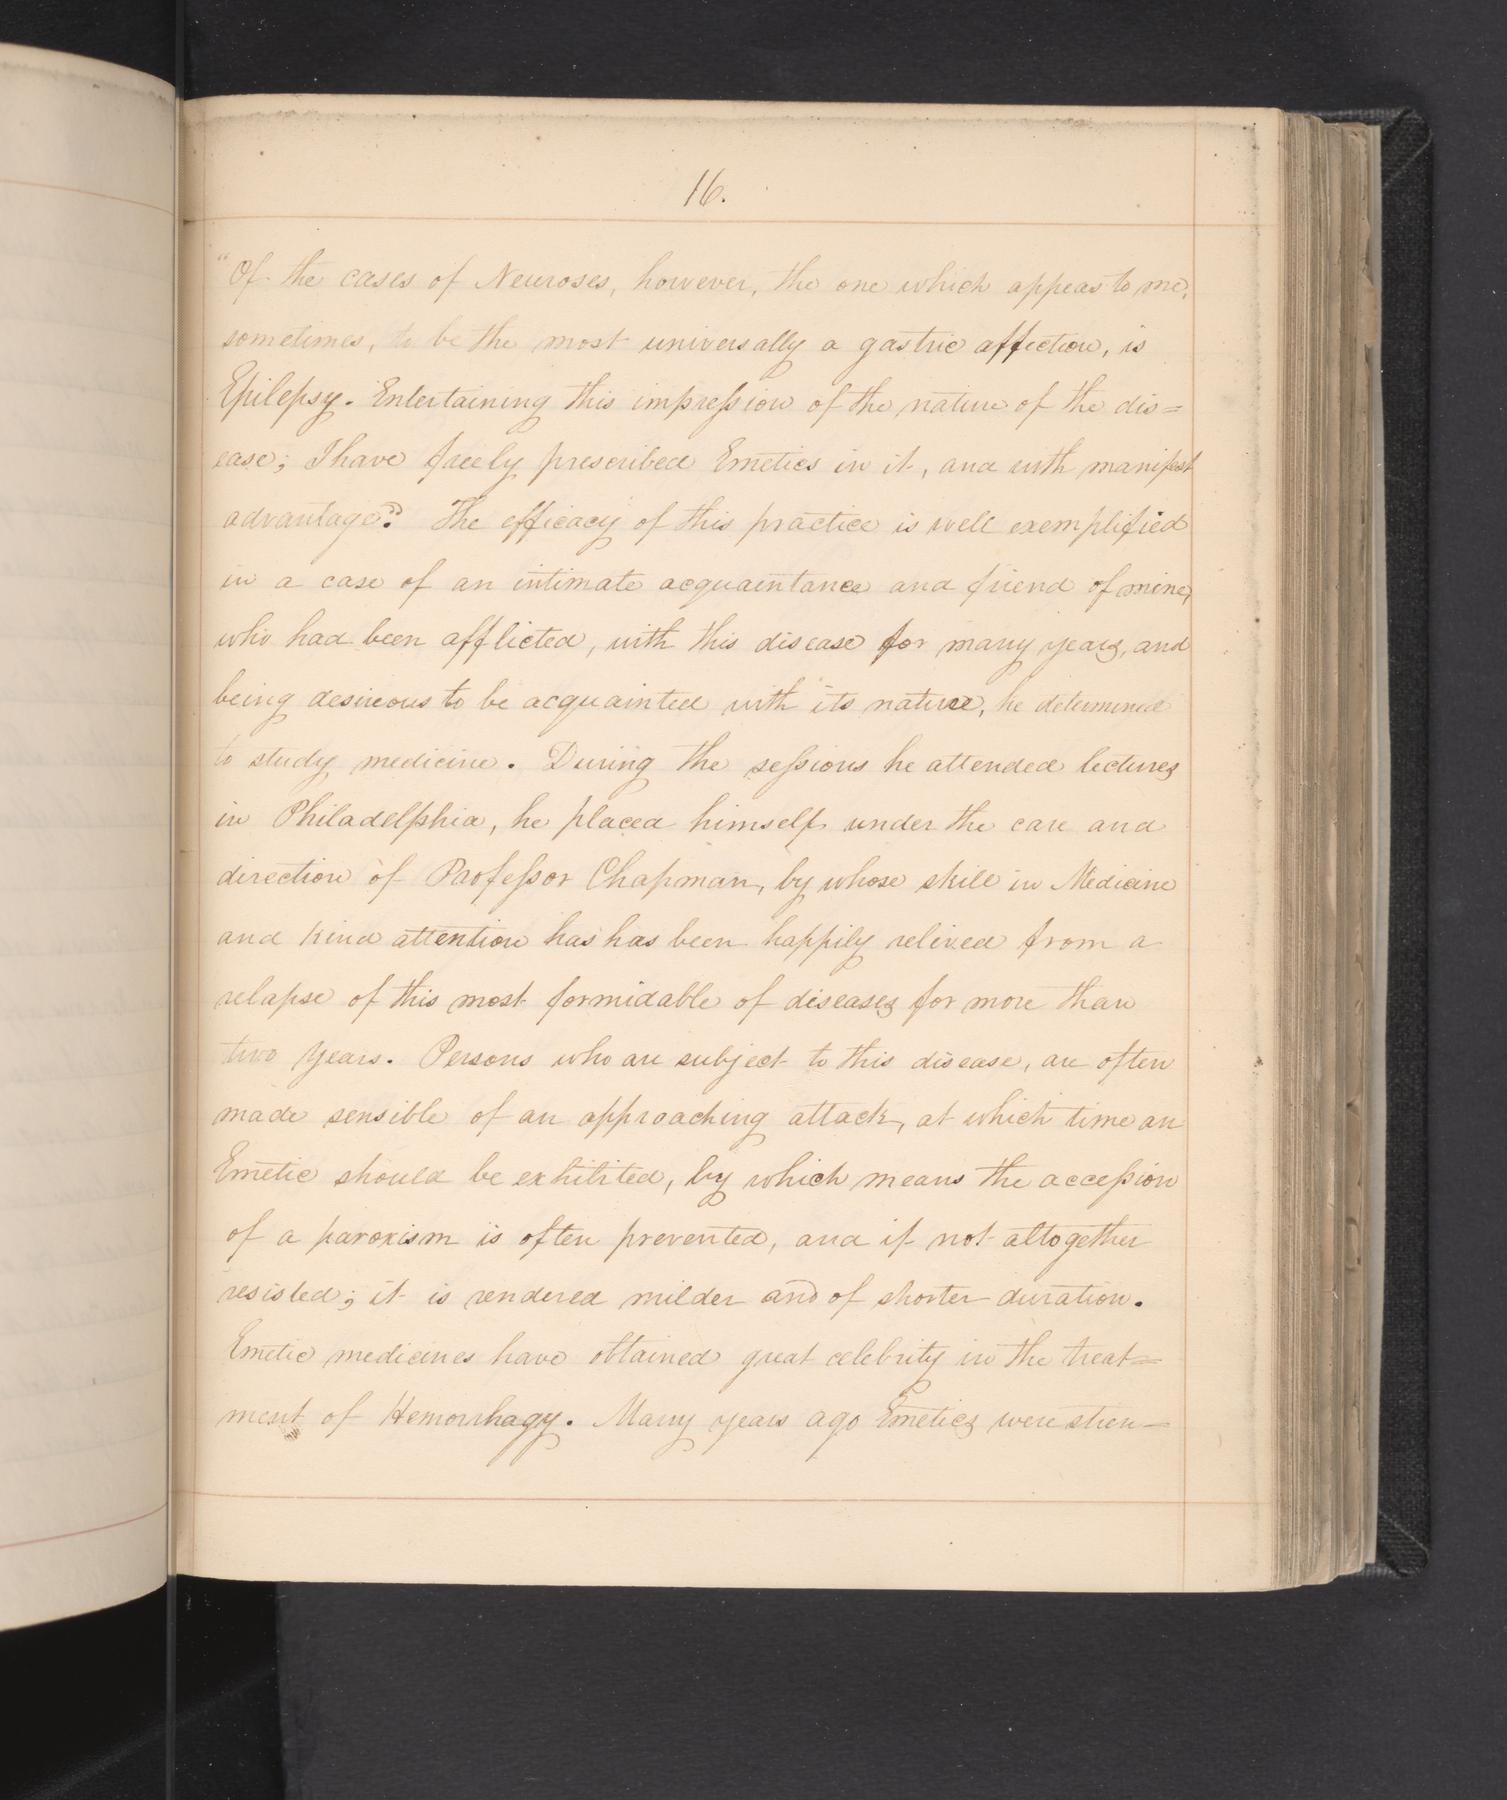 16.
"Of the cases of Neuroses, however, the one which appeas to me,
sometimes, to be the most universally a gastric affection, is
Epilepsy. Entertaining this impression of the nature of the dis=
ease; I have freely prescribed Emetics in it, and with manifest
advantage." The efficacy of this practice is well exemplified
in a case of an intimate acquaintance and friend of mine,
who had been afflicted, with this disease for many years, and
being desireous to be acquainted with its nature, he determined
to study medicine. During the sessions he attended lectures
in Philadelphia, he placed himself under the care and
direction of Professor Chapman, by whose skill in Medicine
and kind attention has has been happily relived from a
relapse of this most formidable of diseases for more than
two years. Persons who are subject to this disease, are often
made sensible of an approaching attack, at which time an
Emetic should be exhibited, by which means the accession
of a paroxism is often prevented, and if not altogether
resisted; it is rendered milder and of shorter duration.
Emetic medicines have obtained great celebrity in the treat=
ment of Hemorrhagy. Many years ago Emetics were stren=